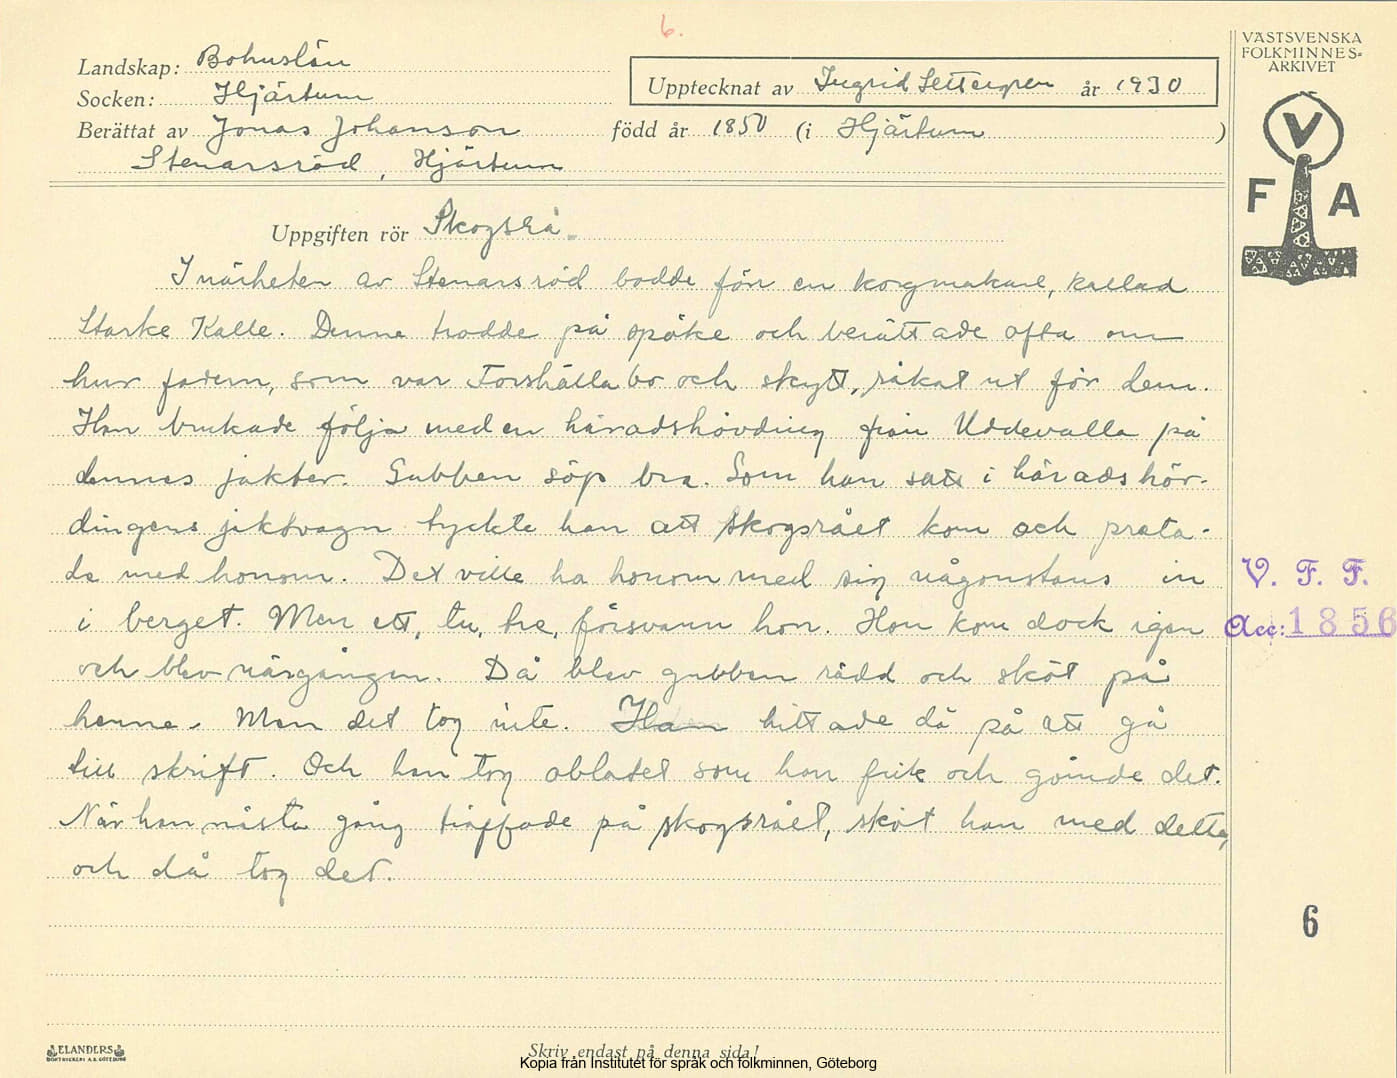 6.
VÄSTSVENSKA
FOLKMINNES=
ARKIVET
Landskap: Bohuslän
Socken: Hjärtum
Upptecknat av Ingrid Settergren år 1930
Berättat av Jonas Johanson född år 1850 (i Hjärtum )
Stenarsröd, Hjärtum
V
F A
Uppgiften rör Skogsrå
I närheten av Stenarsröd bodde förr en korgmakare, kallad
Starke Kalle. Denne trodde på spöke och berättade ofta om
hur fadern, som var Forshälla bo och skytt, råkat ut för dem.
Han brukade följa med en häradshövding från Uddevalla på
dennes jakter. Gubben söp bra. Som han satt i häradshöv-
dingens jaktvagn tyckte han att skogsrået kom och prata-
de med honom. Det ville ha honom med sig någonstans in
i berget. Men ett, tu, tre, försvann hon. Hon kom dock igen
och blev närgången. Då blev gubben rädd och sköt på
henne. Men det tog inte. Han hittade då på att gå
till skrift. Och han tog obladet som han fick och gömde det.
När han nästa gång träffade på skogsrået, sköt han med detta,
och då tog det.
V. F. F.
Acc: 1856
6
ELANDERS
BOKTRYCKERI A.B. GÖTEBORG
Skriv endast på denna sida!
Kopia från Institutet för språk och folkminnen, Göteborg